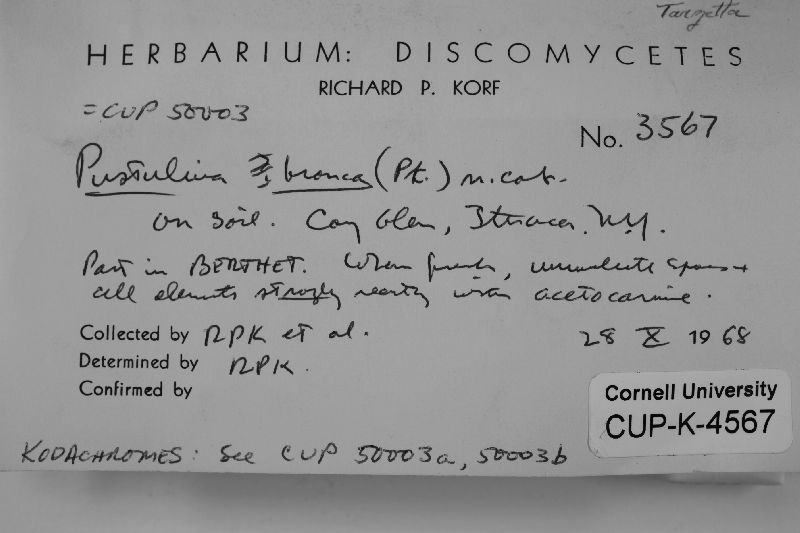 Tarzetta
HERBARIUM: DISCOMYCETES
RICHARD P. KORF
= CUP 50003
No. 3567
Pustulina bronca (Pk.) n. comb.
on soil. Coy Glen, Ithaca, N.Y.
Part in BERTHET. When fresh, uninucleate spores +
all elements strongly reacting with acetocarmine.
Collected by RPK et al.
28 X 1968
Determined by RPK.
Confirmed by
Cornell University
CUP-K-4567
KODACHROMES: See CUP 50003a, 50003b